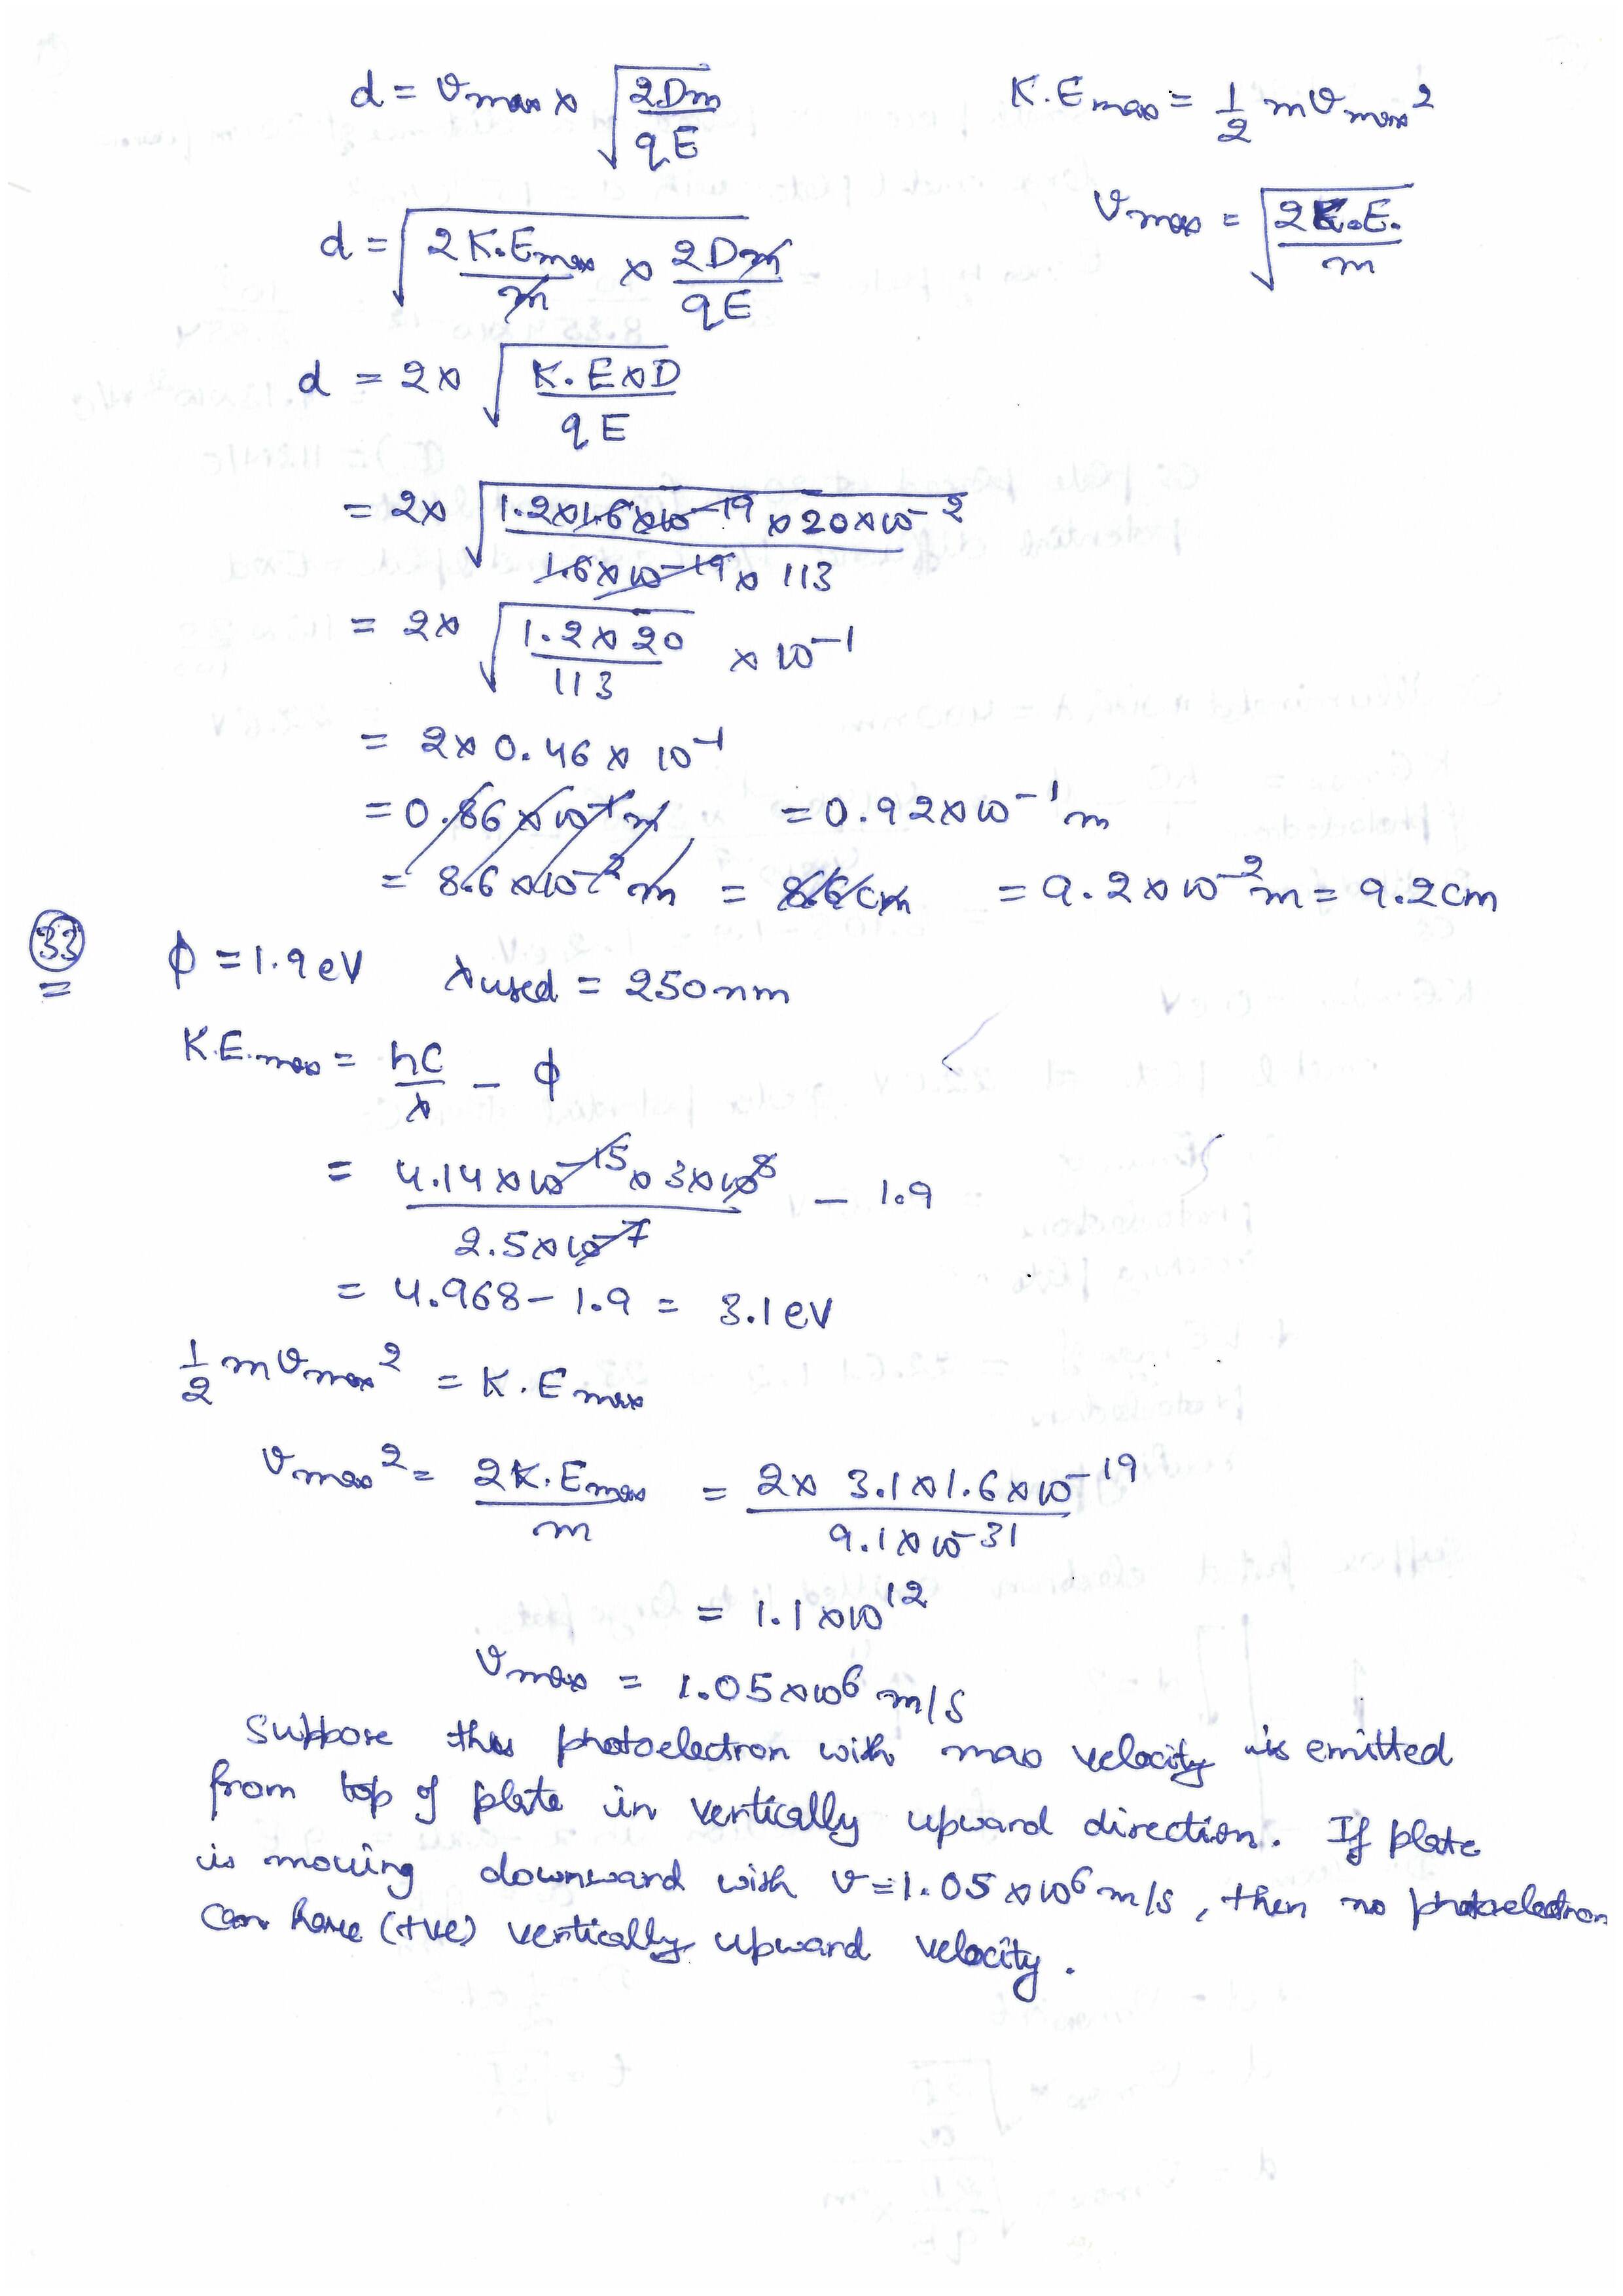 d = vmax × √(2Dm / qE)    K.Emax = 1/2 mvmax²
d = √(2K.Emax / m × 2Dm / qE)    vmax = √(2K.E. / m)
d = 2 × √(K.E×D / qE)
= 2 × √(1.2×1.6×10⁻¹⁹ × 20×10⁻² / 1.6×10⁻¹⁹ × 113)
= 2 × √(1.2 × 20 / 113) × 10⁻¹
= 2 × 0.46 × 10⁻¹
= 0.86 × 10⁻¹ m    = 0.92×10⁻¹ m
= 8.6 ×10⁻² m = 8.6 cm    = 9.2 × 10⁻² m = 9.2 cm
33 ϕ = 1.9 eV    λused = 250 nm
K.E.max = hC / λ − ϕ
= 4.14 × 10⁻¹⁵ × 3×10⁸ / 2.5×10⁻⁷ − 1.9
= 4.968 − 1.9 = 3.1 eV
1/2 mvmax² = K.Emax
vmax² = 2K.Emax / m = 2 × 3.1 × 1.6 × 10⁻¹⁹ / 9.1 × 10⁻³¹
= 1.1 ×10¹²
vmax = 1.05×10⁶ m/s
Suppose this photoelectron with max velocity is emitted
from top of plate in vertically upward direction. If plate
is moving downward with v = 1.05 ×10⁶ m/s, then no photoelectron
can have (+ve) vertically upward velocity.